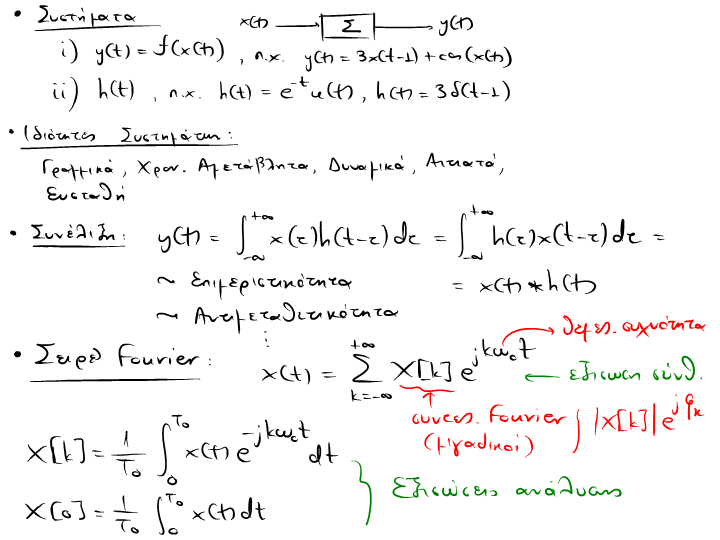 • Συστήματα x(t) → Σ → y(t)
i) y(t) = f(x(t)) , π.χ. y(t) = 3x(t-1) + cos(x(t))
ii) h(t) , π.χ. h(t) = e^{-t} u(t) , h(t) = 3δ(t-1)
• Ιδιότητες Συστημάτων :
Γραμμικά , Χρον. Αμετάβλητα, Δυναμικά, Αιτιατά,
Ευσταθή
• Συνέλιξη: y(t) = ∫_{-∞}^{+∞} x(τ)h(t-τ)dτ = ∫_{-∞}^{+∞} h(τ)x(t-τ)dτ =
~ Επιμεριστικότητα = x(t) * h(t)
~ Αντιμεταθετικότητα
⋮
→ θεμελ. συχνότητα
• Σειρά Fourier : x(t) = Σ_{k=-∞}^{+∞} X[k] e^{jkω_0t} ← εξίσωση σύνθ.
↑ συντελ. Fourier
(μιγαδικοί) |X[k]| e^{jφ_k}
X[k] = 1/T_0 ∫_0^{T_0} x(t) e^{-jkω_0t} dt
X[0] = 1/T_0 ∫_0^{T_0} x(t) dt } Εξισώσεις ανάλυσης